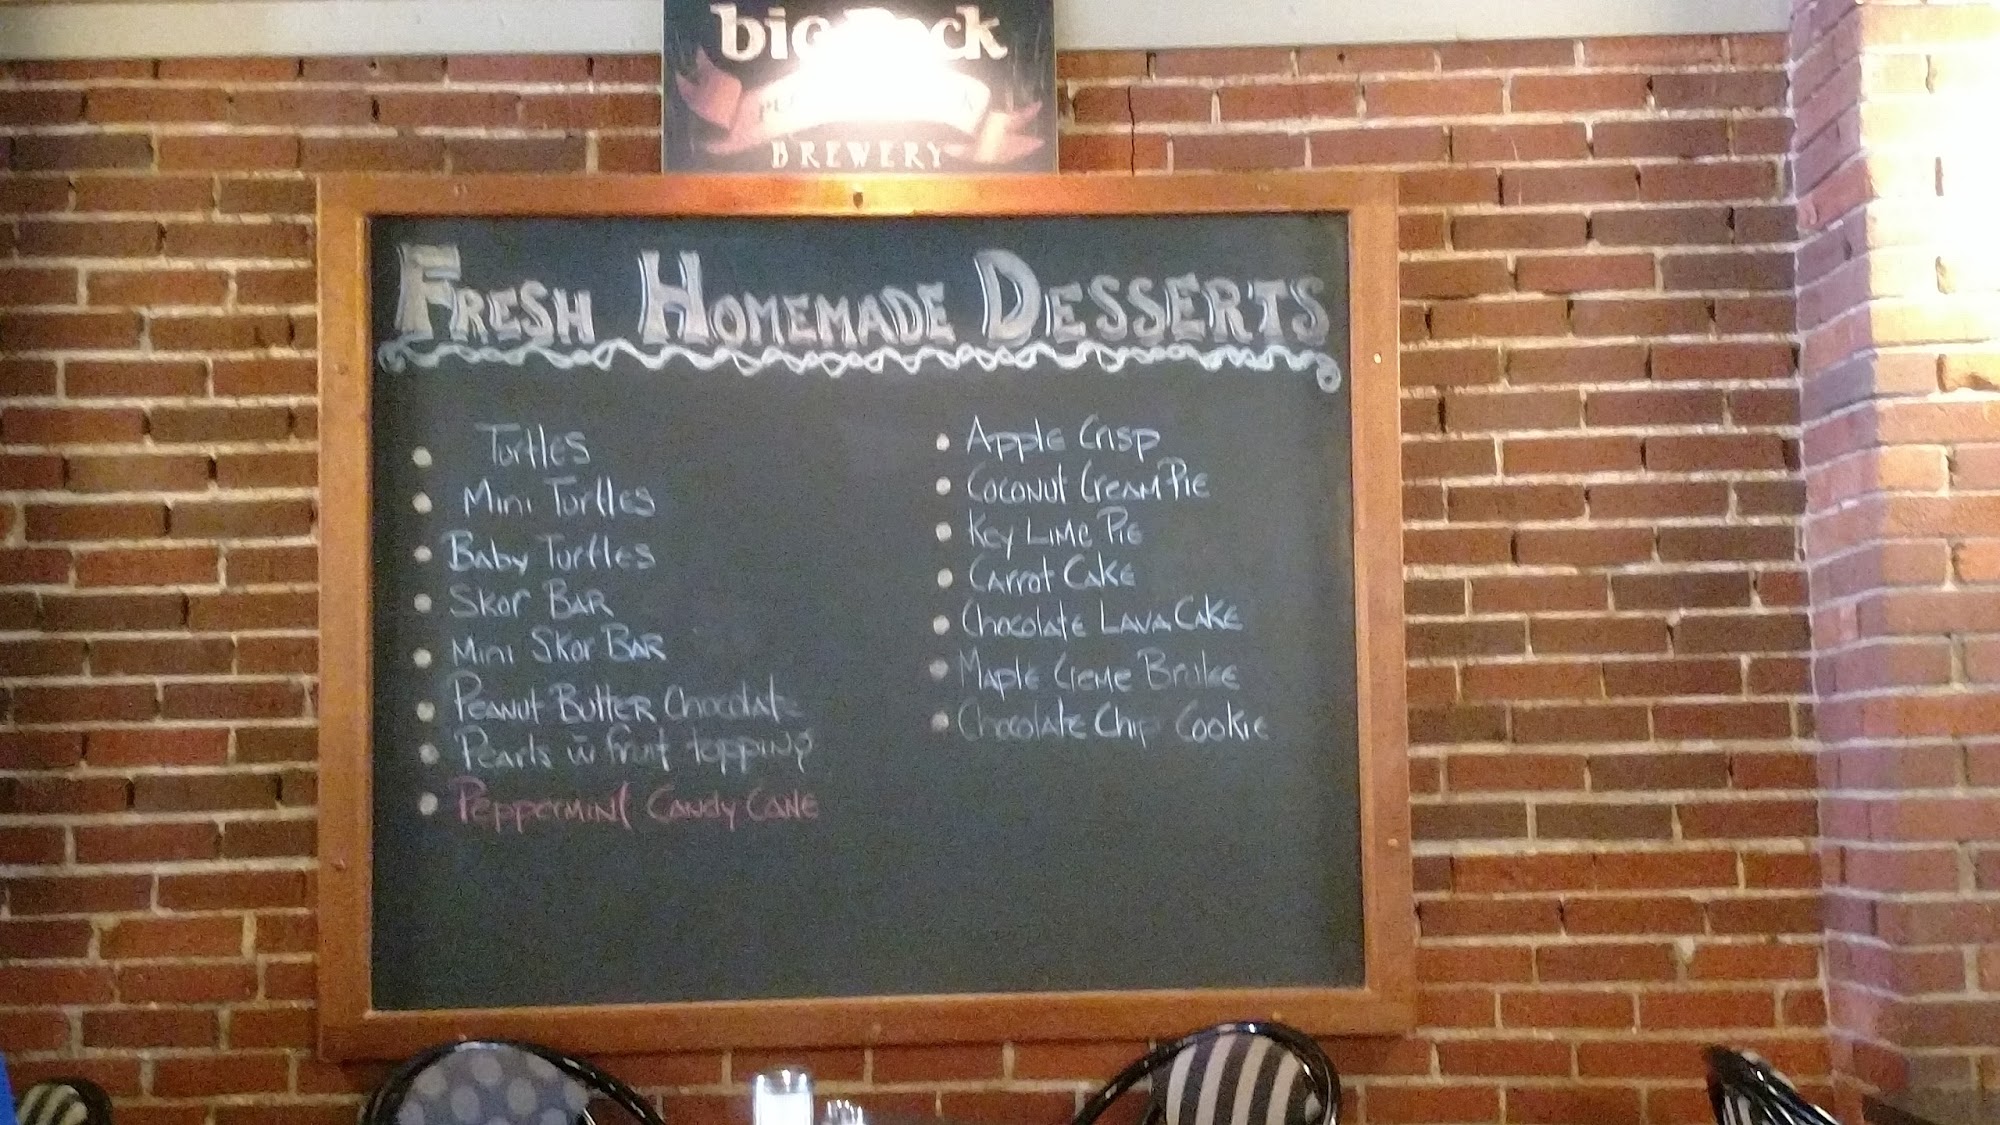 big Rock
BREWERY
FRESH HOMEMADE DESSERTS
Turtles
Mini Turtles
Baby Turtles
Skor BAR
Mini Skor BAR
PEANUT BUTTER Chocolate
Pearls w fruit topping
PEPPERMINT CANDY CANE
Apple Crisp
Coconut Cream PIE
Key Lime PIE
Carrot CAKE
Chocolate LAVA CAKE
Maple Creme Brulee
Chocolate Chip Cookie